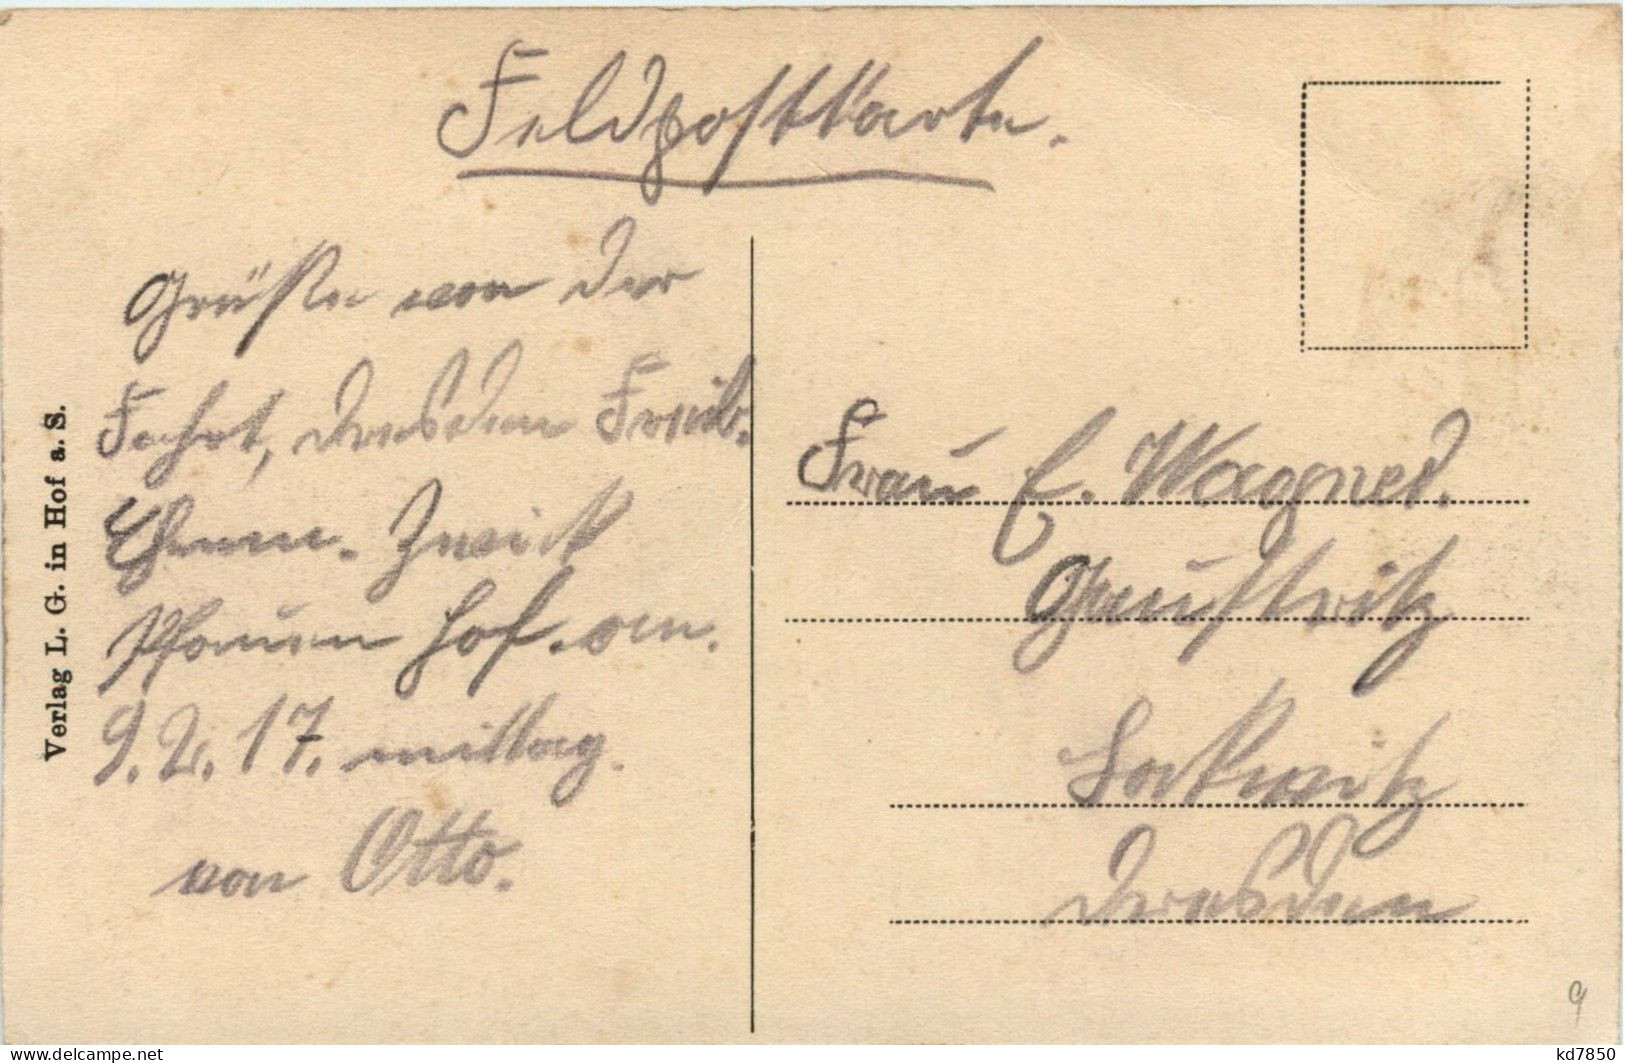 Feldpostkarte.
Grüße von der
Fahrt, Dresden Freib.
Chemn. Zwick
Plauen Hof. am.
9.2.17. mittag.
von Otto.
Frau E. Wagner.
Gaustritz
Lockwitz
Dresden
Verlag L. G. in Hof a. S.
9
kd7850